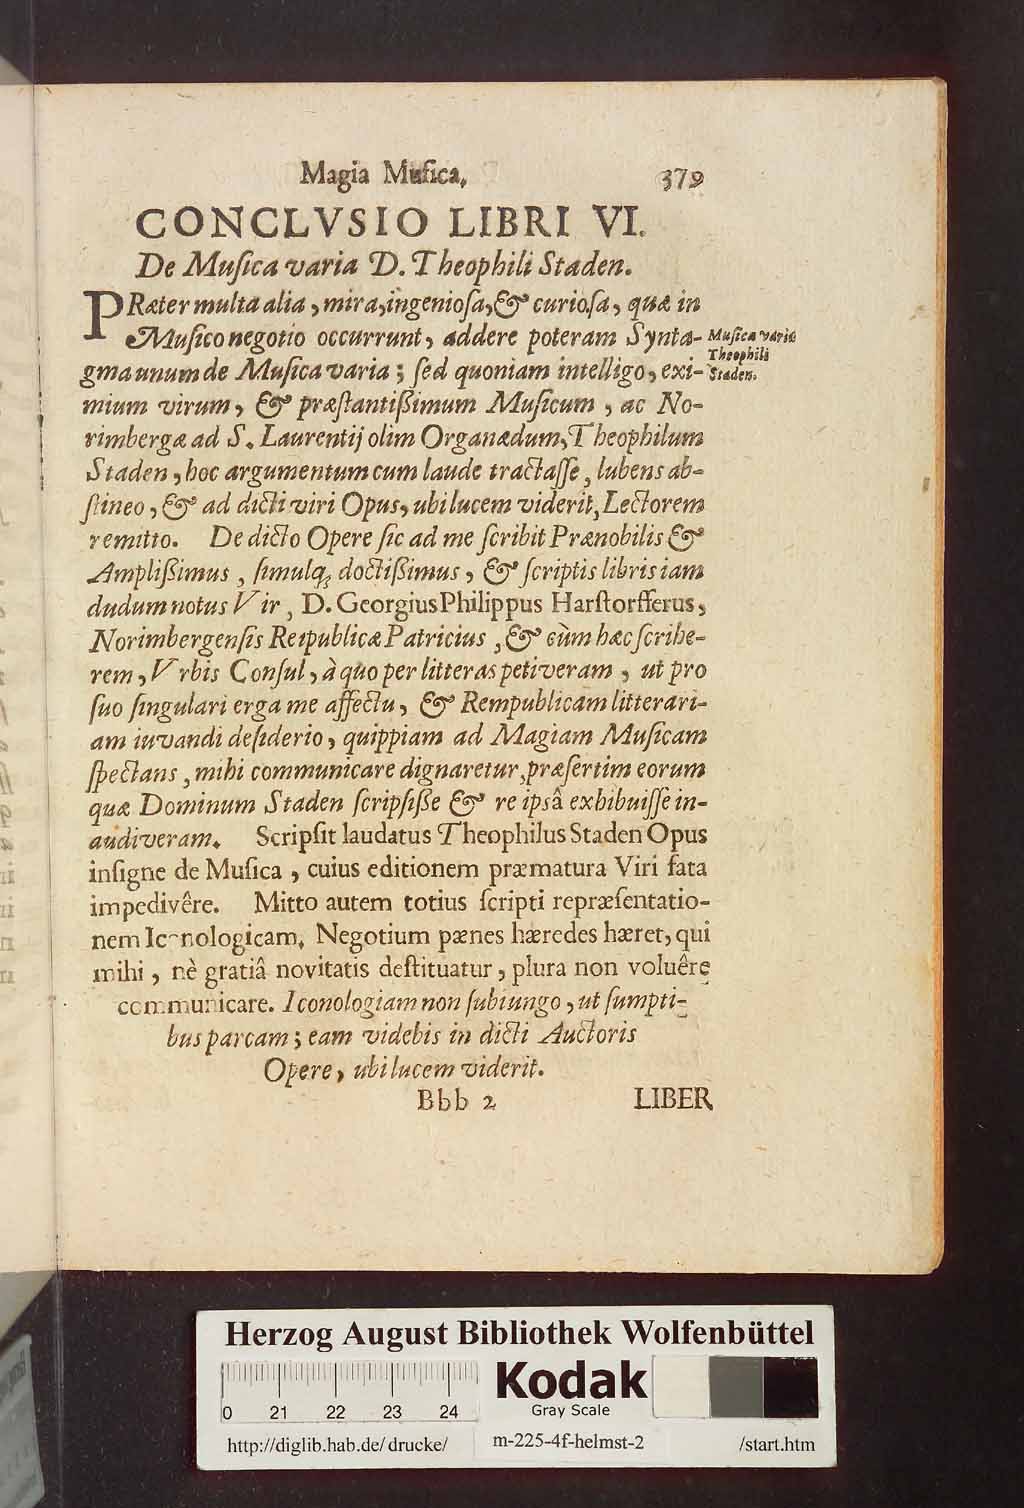 Magia Musica. 379
CONCLVSIO LIBRI VI.
De Musica varia D. Theophili Staden.
PRæter multa alia, mira, ingeniosa, & curiosa, quæ in
Musico negotio occurrunt, addere poteram Synta-
Musica varia
Theophili
Staden.
gma unum de Musica varia; sed quoniam intelligo, exi-
mium virum, & præstantißimum Musicum, ac No-
rimbergæ ad S. Laurentij olim Organædum, Theophilum
Staden, hoc argumentum cum laude tractasse, lubens ab-
stineo, & ad dicti viri Opus, ubi lucem viderit, Lectorem
remitto. De dicto Opere sic ad me scribit Prænobilis &
Amplißimus, simulq; doctißimus, & scriptis libris iam
dudum notus Vir, D. Georgius Philippus Harstorfferus,
Norimbergensis Reipublicæ Patricius, & cùm hæc scribe-
rem, Vrbis Consul, à quo per litteras petiveram, ut pro
suo singulari erga me affectu, & Rempublicam litterari-
am iuvandi desiderio, quippiam ad Magiam Musicam
spectans, mihi communicare dignaretur, præsertim eorum
quæ Dominum Staden scripsiße & re ipsâ exhibuisse in-
audiveram. Scripsit laudatus Theophilus Staden Opus
insigne de Musica, cuius editionem præmatura Viri fata
impedivêre. Mitto autem totius scripti repræsentatio-
nem Iconologicam. Negotium pænes hæredes hæret, qui
mihi, nè gratiâ novitatis destituatur, plura non voluêre
communicare. Iconologiam non subiungo, ut sumpti-
bus parcam; eam videbis in dicti Auctoris
Opere, ubi lucem viderit.
Bbb 2 LIBER
Herzog August Bibliothek Wolfenbüttel
0 21 22 23 24
Kodak
Gray Scale
http://diglib.hab.de/drucke/ m-225-4f-helmst-2 /start.htm